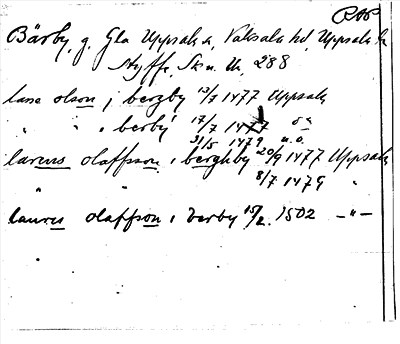 Bärby, g. Gla Uppsala, Vaksala hd, Uppsala
Styffe, Sk u. Un, 288
lasse olson j bergby 13/7 1477 Uppsala
" " i berby 17/7 1477
31/5 1479 u.o.
laurens olaffsson i berghby 20/9 1477 Uppsala
" " 8/7 1479 "
laures olaffson i berby 15/2 1502 -"-